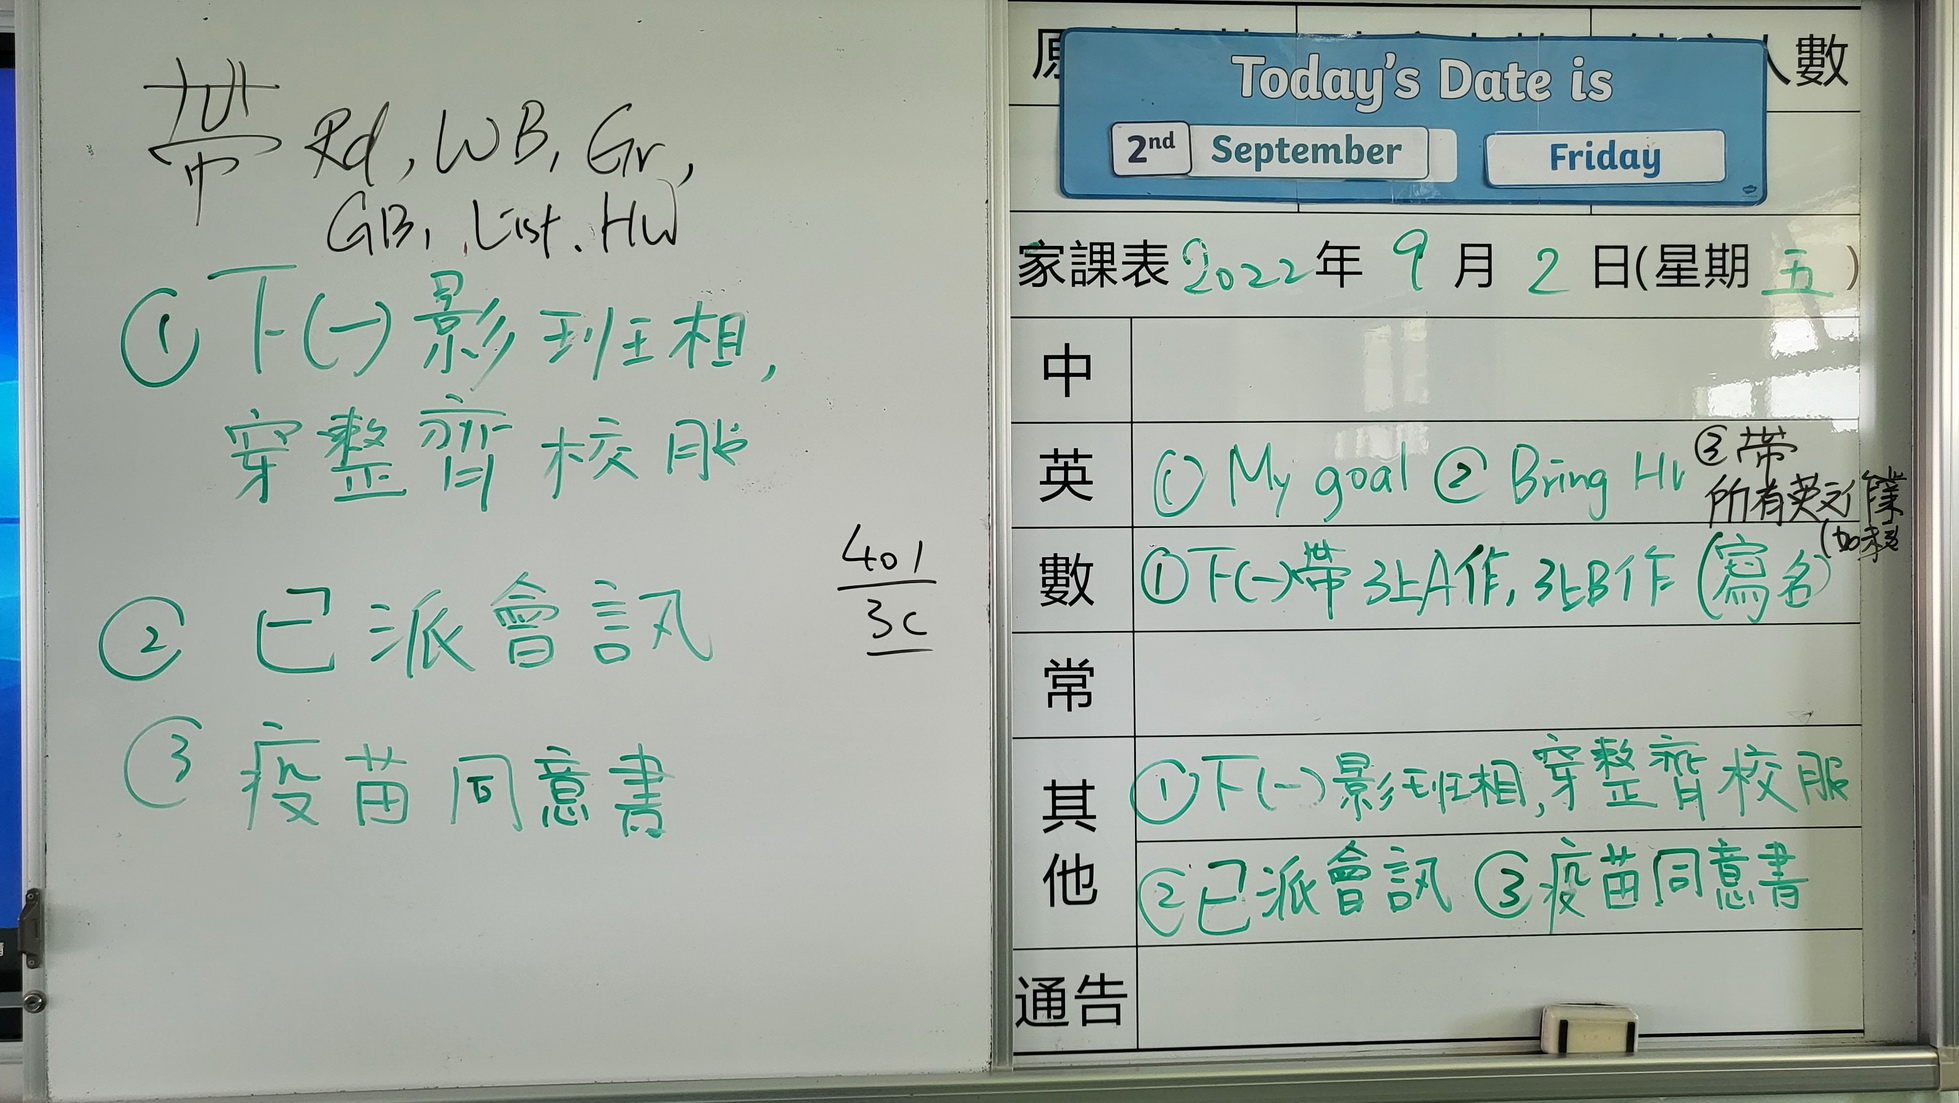 帶 Rd, WB, Gr,
GB, List, HW
① 下(一)影班相,
穿整齊校服
② 已派會訊
③ 疫苗同意書
401
3C
原
人數
Today's Date is
2nd September Friday
家課表 2022年 9月 2日(星期五)
中
英 ① My goal ② Bring HW ③ 帶
所有英文作業
數 ① 下(一)帶 3上A作, 3上B作 (寫名)
常
其他
① 下(一)影班相, 穿整齊校服
② 已派會訊 ③ 疫苗同意書
通告